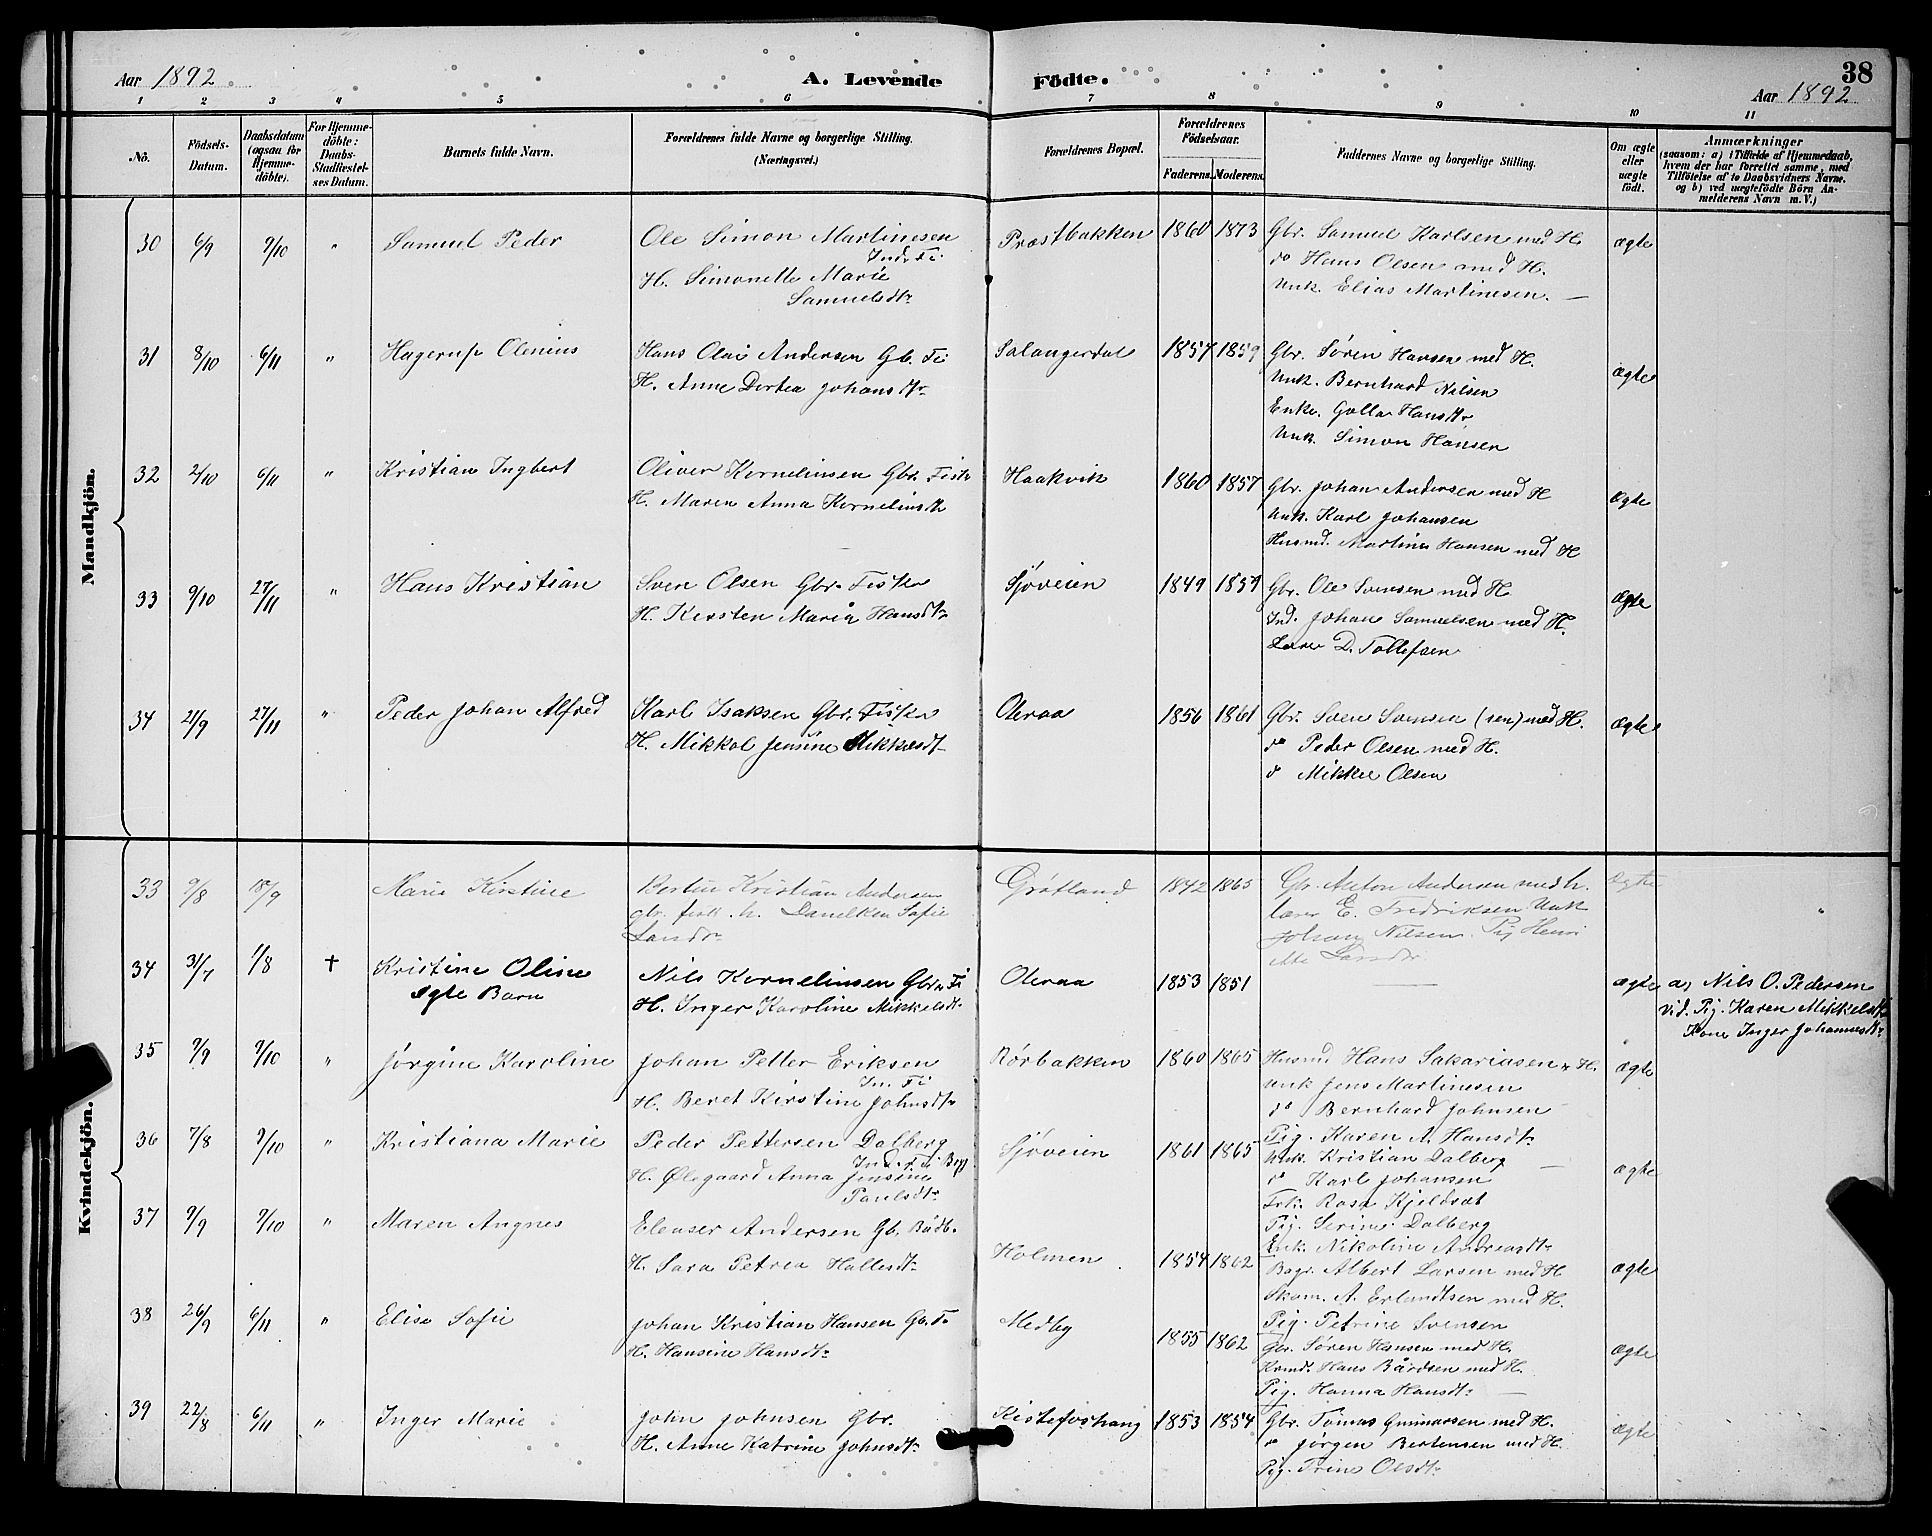 Aar 1892
A. Levende
Födte.
38
Aar 1892
1 2 3 4 5 6 7 8 9 10 11
No.
Födsels-Datum.
Daabsdatum (ogsaa for Hjemme-döbte).
For Hjemme-döbte: Daabs-Stadfæstel-ses Datum.
Barnets fulde Navn.
Forældrenes fulde Navne og borgerlige Stilling. (Næringsvei.)
Forældrenes Bopæl.
Forældrenes Födselsaar.
Faderens. Moderens.
Faddernes Navne og borgerlige Stilling.
Om ægte eller uægte födt.
Anmærkninger (saasom: a) i Tilfælde af Hjemmedaab, hvem der har forrettet samme, med Tilföielse af to Daabsvidners Navne. og b) ved uægtefödte Börn An-melderens Navn m. V.)
Mandkjön.
30 6/9 9/10 " Samuel Peder
Ole Simon Martinesen
Ind. Fi.
H. Simonette Marie
Samuelsdtr
Præstbakken 1860 1873
Gbr. Samuel Karlsen med H.
do Hans Olsen med H.
Unk. Elias Martinesen. —
ægte
31 8/10 6/11 " Hagerup Olenius
Hans Olai Andersen Gb. Fi
H. Anne Dortea Johansdtr
Salangerdal 1857 1859
Gbr. Søren Hansen med H.
Unk. Bernhard Nilsen
Enke. Golla Hansdtr
Unk. Simon Hansen
ægte
32 2/10 6/11 " Kristian Ingbert
Oliver Kornelinsen Gbr. Fisk
H. Maren Anna Kornelinsdtr
Haakvik 1860 1857
Gbr. Johan Andersen med H
Unk. Karl Johansen
Husmd. Martin Hansen med H
ægte
33 9/10 27/11 " Hans Kristian
Sven Olsen Gbr. Fisker
H. Kersten Maria Hansdtr
Sjøveien 1849 1859
Gbr. Ole Svensen med H
Ind. Johan Samuelsen med H.
Lærer D. Tollefsen
ægte
34 21/9 27/11 " Peder Johan Alfred
Karl Isaksen Gbr. Fisker
H. Mikkol Jensine Mikkelsdt
Oleraa 1856 1861
Gbr. Sven Svensen (sen) med H.
do Peder Olsen med H.
do Mikkel Olsen
ægte
Kvindekjön.
33 9/8 18/9 Marie Kirstine
Bertin Kristian Andersen
gbr. fisk. h. Danelken Sofie
Larsdtr
Grøtland 1842 1865
Gbr. Anton Andersen med h.
lærer E. Fredriksen Unk
Johan Nilsen. Pig Henri
ette Larsdtr
Ægte "
34 31/7 1/8 † Kristine Oline
ægte Barn
Nils Kornelinsen Gbr. Fi
H. Inger Karoline Mikkelsdtr
Oleraa 1853 1851 —
ægte
a, Nils O. Pedersen
vid. Pig. Karen Mikkelsdtr
Kone Inger Johannesdtr
35 9/9 9/10 " Jørgine Karoline
Johan Petter Eriksen
In. Fi
H. Beret Kirstine Johnsdtr
Rørbakken 1860 1865
Husmd Hans Sakariasen & H.
Unk Jens Martinesen
do Bernhard Johnsen
Pig. Karen A. Hansdtr
ægte
36 7/8 9/10 " Kristiana Marie
Peder Pettersen Dalberg
Ind. Fi
H. Ølegaard Anna Jensine
Paulsdtr
Sjøveien 1861 1865
Unk. Kristian Dalberg —
do Karl Johansen
Frk. Rosa Kjeldsat
Pig. Serine Dalberg
ægte
37 9/9 9/10 " Maren Angnes
Eleaser Andersen Gb. Bådb.
H. Sara Petrea Hallesdtr
Holmen 1854 1862
Enk. Nikoline Andreasdtr
Bagr. Albert Larsen med H
Skom. A. Erlandtsen med H.
Pig. Petrine Svensen
ægte
38 26/9 6/11 " Elise Sofie
Johan Kristian Hansen Gb. Fi
H. Hansine Hansdtr
Medby 1855 1862
Gbr. Søren Hansen med H.
Hans Bårdsen med H.
Pig. Hanna Hansdtr —
ægte
39 22/8 6/11 " Inger Marie
John Johnsen Gbr.
H. Anne Katrine Johnsdtr
Kistefoshaug 1853 1854
Gbr. Tomas Gunnarsen med H.
do Jørgen Bertensen med H.
Pig. Trine Olsdtr
ægte